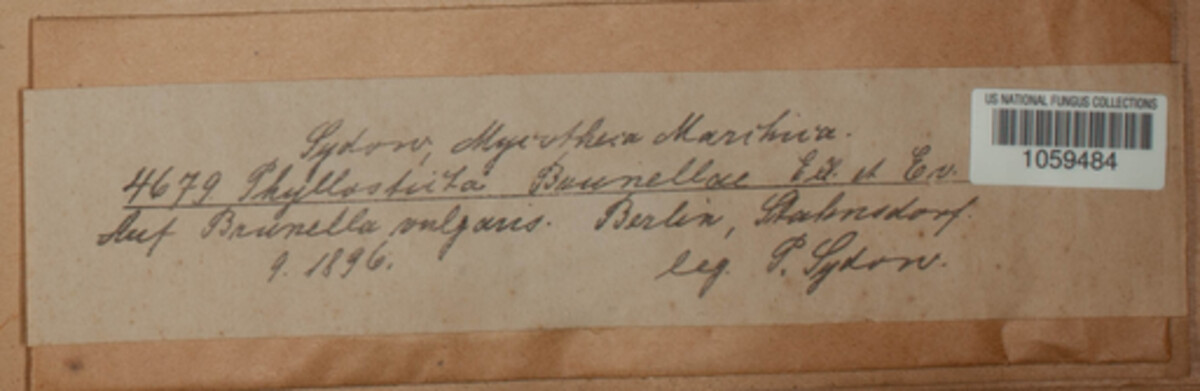 Sydow, Mycotheca Marchica.
4679 Phyllosticta Brunellae Ell. et Ev.
Auf Brunella vulgaris. Berlin, Stahnsdorf.
9. 1896. leg. P. Sydow.
US NATIONAL FUNGUS COLLECTIONS
1059484